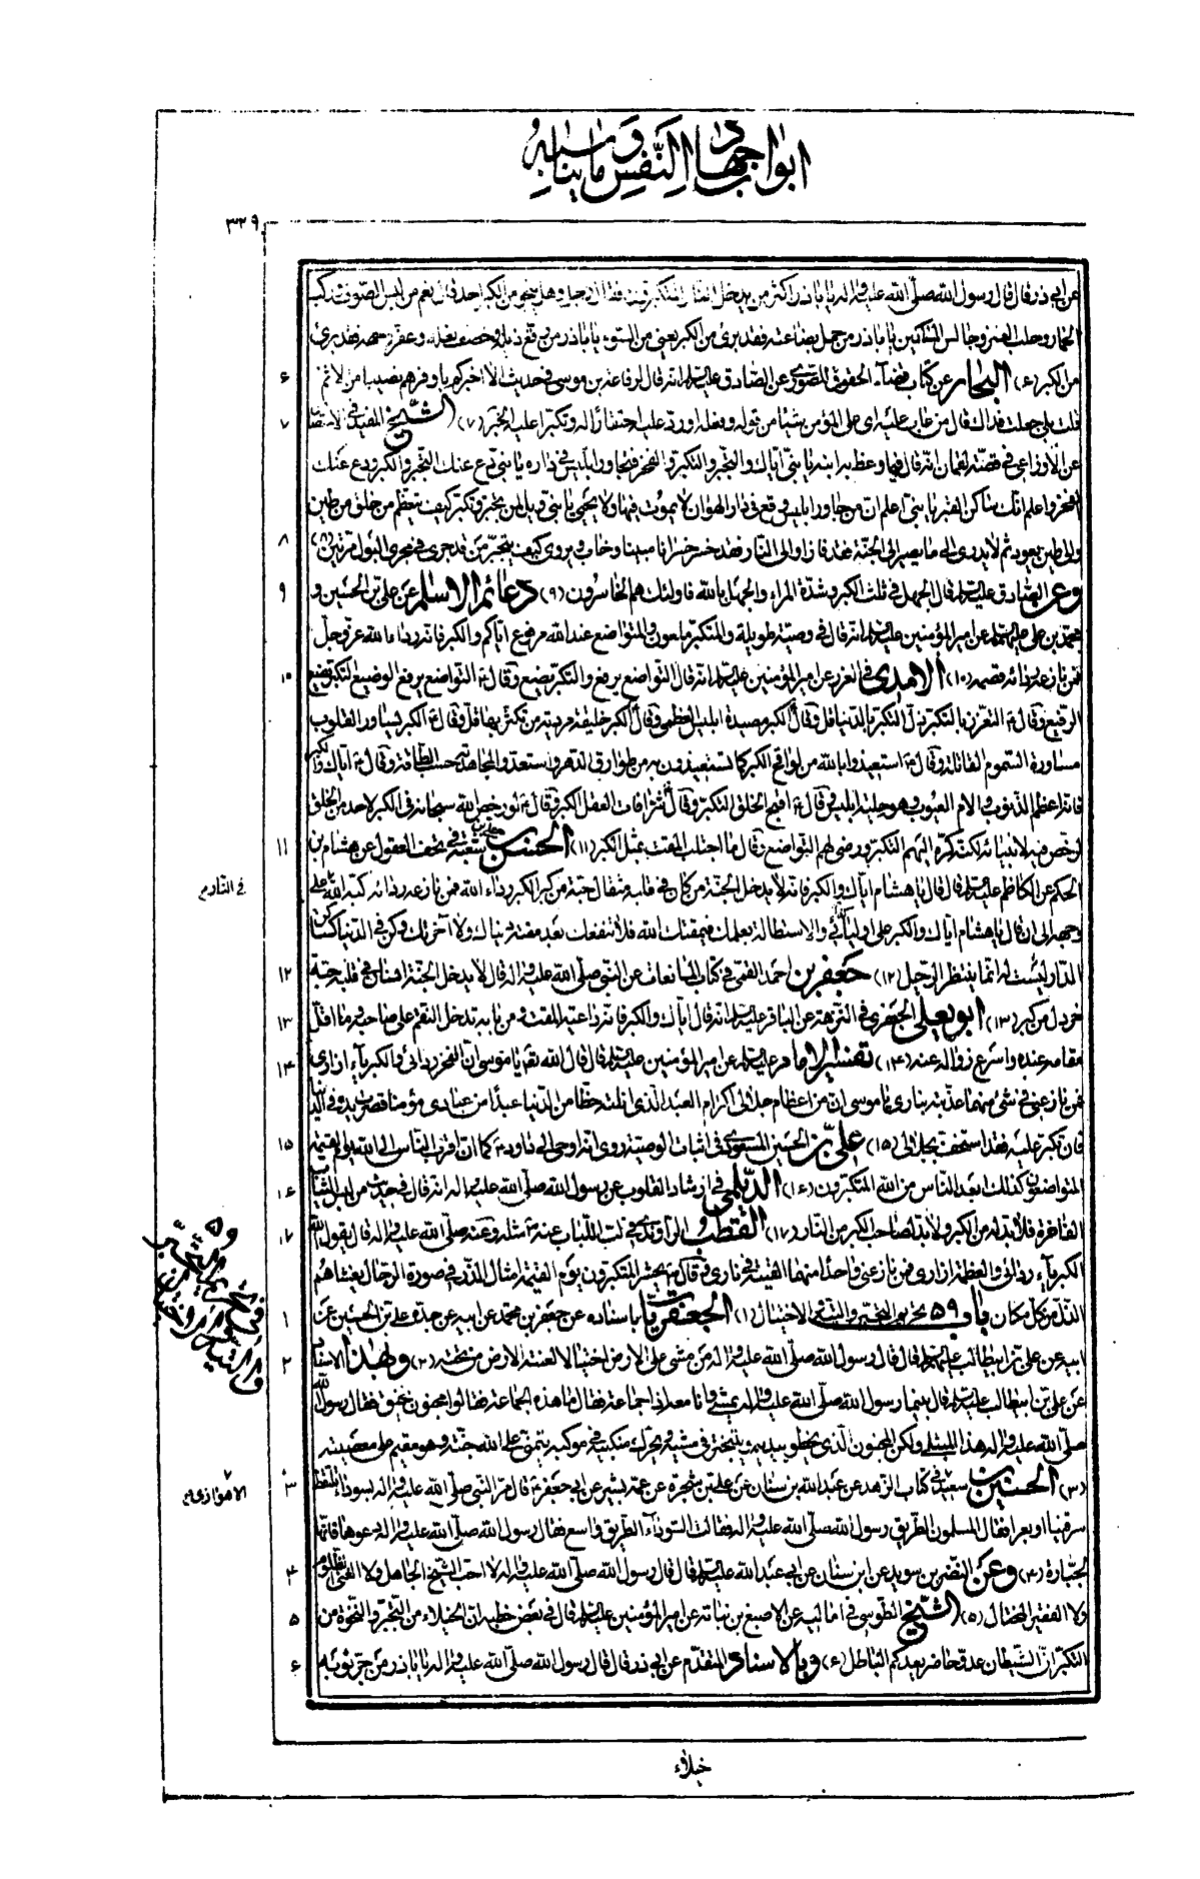 ابواب جهاد النفس وما يناسبه
٣٢٩
عن ابى ذر قال قال رسول الله صلّى الله عليه واله يا باذر اكثر من يدخل النار المتكبرون فقال رجل وهل ينجو من الكبر احد قال نعم من لبس الصوف وركب
الحمار وحلب العنز وجالس المساكين يا باذر من حمل بضاعته فقد برئ من الكبر يعنى من السوق يا باذر من رقع ذيله وخصف نعله وعفّر وجهه فقد برئ
من الكبر (٦) البحار عن كتاب قضاء الحقوق للصورى عن الصادق عليه السلام انه قال لرفاعة بن موسى فى حديث الا اخبركم باوفرهم نصيبا من الاثم
قلت بلى جعلت فداك قال من عاب عليه اى على المؤمن شيئا من قوله وفعله او ردّ عليه احتقارا له وتكبرا عليه الخبر (٧) الشيخ المفيد فى الاختصاص
عن الاوزاعى فى قصة لقمان انه قال فيما وعظ به ابنه يا بنى اياك والتجبر والتكبر والفخر فتجاور ابليس فى داره يا بنى دع عنك التجبر والكبر ودع عنك
الفخر واعلم انك ساكن القبر يا بنى اعلم ان من جاور ابليس وقع فى دار الهوان لا يموت فيها ولا يحيى يا بنى ويل لمن تجبر وتكبر كيف يتعظم من خلق من طين
والى طين يعود ثم لا يدرى الى ما يصير الى الجنة فقد فاز او الى النار فقد خسر خسرانا مبينا وخاب ويروى كيف يتجبر من قد جرى فى مجرى البول مرتين (٨)
وعن الصادق عليه السلام قال الجهل فى ثلث الكبر وشدة المراء والجهل بالله فاولئك هم الخاسرون (٩) دعائم الاسلام عن على بن الحسين و
محمد بن على عليهما السلام عن امير المؤمنين عليه السلام انه قال فى وصية طويلة والمتكبر ملعون والمتواضع عند الله مرفوع اياكم والكبر فانه رداء الله عز وجل
فمن نازعه رداءه قصمه (١٠) الامدى فى الغرر عن امير المؤمنين عليه السلام انه قال التواضع يرفع والتكبر يضع وقال ع التواضع يرفع الوضيع التكبر يضع
الرفيع وقال ع التعزز بالتكبر ذل التكبر بالدنيا قل وقال الكبر مصيدة ابليس العظمى وقال الكبر خليقة مردية من تكثر بها قل وقال ع الكبر يساور القلوب
مساورة السموم القاتلة وقال ع استعيذوا بالله من لواقح الكبر كما تستعيذون به من طوارق الدهر واستعدوا لمجاهدته حسب الطاقة وقال ع اياك والكبر
فانه اعظم الذنوب والام العيوب وهو حلية ابليس وقال ع اقبح الخلق التكبر وقال شر افات العقل الكبر وقال ع لو رخص الله سبحانه فى الكبر لاحد من الخلق
لرخص فيه لانبيائه لكنه كره اليهم التكبر ورضى لهم التواضع وقال ما اجتلب المقت بمثل الكبر (١١) الحسن بن على بن شعبة فى تحف العقول عن هشام بن
الحكم عن الكاظم عليه السلام قال قال يا هشام اياك والكبر فانه لا يدخل الجنة من كان فى قلبه مثقال حبة من كبر الكبر رداء الله فمن نازعه رداءه كبه الله على
وجهه الى ان قال يا هشام اياك والكبر على اوليائى والاستطالة بعلمك فيمقتك الله فلا تنفعك بعد مقته دنياك ولا آخرتك وكن فى الدنيا كساكن
الدار ليست له انما ينتظر الرحيل (١٢) جعفر بن احمد القمى فى كتاب المانعات عن النبى صلّى الله عليه واله قال لا يدخل الجنة انسان فى قلبه حبة
خردل من كبر (١٣) ابو يعلى الجعفرى فى النزهة عن الباقر عليه السلام انه قال اياك والكبر فانه داعية المقت ومن بابه تدخل النقم على صاحبه وما اقل
مقامه عنده واسرع زواله عنه (١٤) تفسير الامام عليه السلام عن امير المؤمنين عليه السلام قال قال الله تعم يا موسى ان الفخر ردائى والكبرياء ازارى
فمن نازعنى فى شئ منهما عذبته بنارى يا موسى ان من اعظام جلالى اكرام العبد الذى انلته حظا من الدنيا عبدا من عبادى مؤمنا قصرت يده فى الدنيا
فان تكبر عليه فقد استخف بجلالى (١٥) على بن الحسين المسعودى فى اثبات الوصية روى انه اوحى الى داود ع كما ان اقرب الناس الى الله يوم القيمة
المتواضعون كذلك ابعد الناس من الله المتكبرون (١٦) الديلمى فى ارشاد القلوب عن رسول الله صلّى الله عليه واله انه قال فى حديث من لبس الثياب
الفاخرة فلا بد له من الكبر ولا بد لصاحب الكبر من النار (١٧) القطب الراوندى فى لب اللباب عنه ص مثله وعنه صلّى الله عليه واله قال يقول الله
الكبرياء ردائى والعظمة ازارى فمن نازعنى واحدا منهما القيته فى نارى وقال ص يحشر المتكبرون يوم القيمة امثال الذر فى صورة الرجال يغشاهم
الذل من كل مكان باب ٥٩ تحريم التجبر والتيه والاختيال (١) الجعفريات باسناده عن جعفر بن محمد عن ابيه عن جده على بن الحسين عن
ابيه عن على بن ابيطالب عليهم السلام قال قال رسول الله صلّى الله عليه واله من مشى على الارض اختيالا لعنته الارض من تحته (٢) وبهذا الاسناد
عن على بن ابيطالب عليه السلام قال بينما رسول الله صلّى الله عليه واله يمشى وانا معه اذا جماعة فقال ما هذه الجماعة فقالوا مجنون يخنق فقال رسول الله
صلّى الله عليه واله هذا المبتلى ولكن المجنون الذى يخطو بيديه ويتبختر فى مشيه ويحرك منكبيه فى موكبه يتمنى على الله جنته وهو مقيم على معصيته
(٣) الحسين بن سعيد فى كتاب الزهد عن عبد الله بن سنان عن على بن شجرة عن عمه بشير عن ابى جعفر ع قال مر النبى صلّى الله عليه واله بسوداء تلتقط
سرقينا او بعرا فقال المسلمون الطريق رسول الله صلّى الله عليه واله فقالت السوداء الطريق واسع فقال رسول الله صلّى الله عليه واله دعوها فانها
لجبارة (٤) وعن النضر بن سويد عن ابن سنان عن ابى عبد الله عليه السلام قال قال رسول الله صلّى الله عليه واله لا احب الشيخ الجاهل ولا الغنى الظلوم
ولا الفقير المختال (٥) الشيخ الطوسى فى اماليه عن الاصبغ بن نباته عن امير المؤمنين عليه السلام قال فى بعض خطبه ان الخيلاء من التجبر والنخوة من
التكبر ان الشيطان عدو حاضر يعدكم الباطل (٦) وبالاسناد المتقدم عن ابى ذر قال قال رسول الله صلّى الله عليه واله يا باذر من جر ثوبه
٦
٧
٨
٩
١٠
١١
١٢
١٣
١٤
١٥
١٦
١٧
١
٢
٣
٤
٥
٦
خيلاء